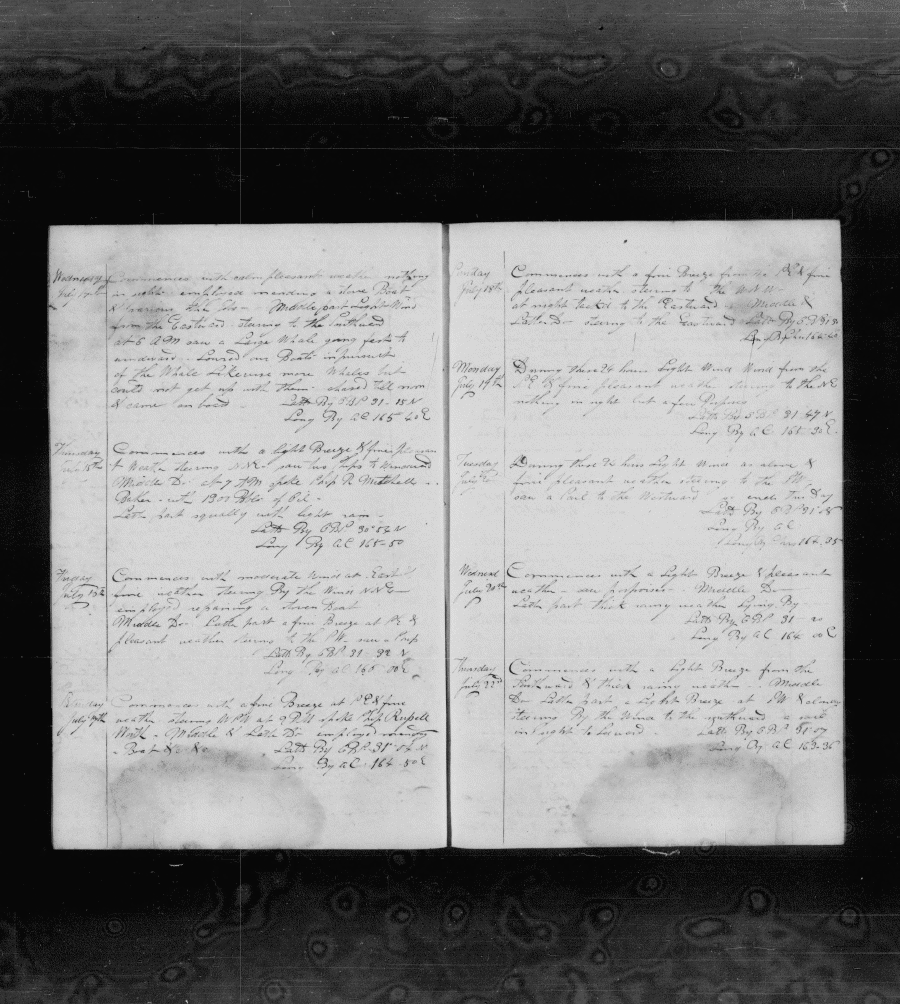 Wednesday Commences with calm pleasant weather nothing
July 14th in sight employed mending a stove Boat
& various other Jobs - Middle part Light Wind
from the Eastward steering to the Southward
at 5 AM saw a Large Whale going fast to
windward - Lowered our Boats in pursuit
of the Whale Likewise more Whales but
could not get up with them - chased till noon
& came on board - Latt By OBS 31-15 N
Long By a.C. 165-40 E
Thursday Commences with a light Breeze & fine pleasant
July 15th Weather steering NNE - saw two ships to Windward
Middle Do - at 7 AM spoke Ship R Mitchell -
Baker - with 1300 Bbls of Oil -
Latr part squally with light rain -
Latt By OBS 30-54 N
Long By a.C. 165-50
Friday Commences with moderate Winds at East
July 16th fine weather steering By the Wind NNE
employed repairing a stoven Boat
Middle Do - Latr part a fine Breeze at SE &
pleasant weather steering to the NW - saw a Ship
Latt By OBS 31-32 N
Long By a.C. 165-00 E
July 17th Commences with a fine Breeze at SE & fine
weather steering WNW at 2 PM spoke Ship
- Middle & Latr Do employed
- Boat &c &c Latt By OBS 31-04 N
Long By a.C. 164-50 E
Sunday Commences with a fine Breeze from the SE & fine
July 18th pleasant weather steering to the WNW
at night tacked to the Eastward - Middle &
Latter Do steering to the Eastward Latt By OBS 31
Long By
Monday During these 24 hours Light Wind Wind from the
July 19th SE & fine pleasant weather steering to the NE
nothing in sight but a few
Latt By OBS 31-47 N
Long By a.C. 165-30 E
Tuesday During these 24 hours Light Winds as above &
fine pleasant weather steering to the
saw a Sail to the Westward ends this Day
Latt By OBS 31-15
Long By a.C.
Long By 164-35
Commences with a Light Breeze & pleasant
weather - Middle Do -
Latr part thick rainy weather Lying By
Latt By OBS 31-20
Long By a.C. 164-00 E
Thursday Commences with a Light Breeze from the
July 22d Southward & thick rainy weather - Middle
Do Latter part a Light Breeze at & cloudy
steering By the Wind to the a sail
in sight to Leeward - Latt By OBS 31-07
Long By a.C. 163-36